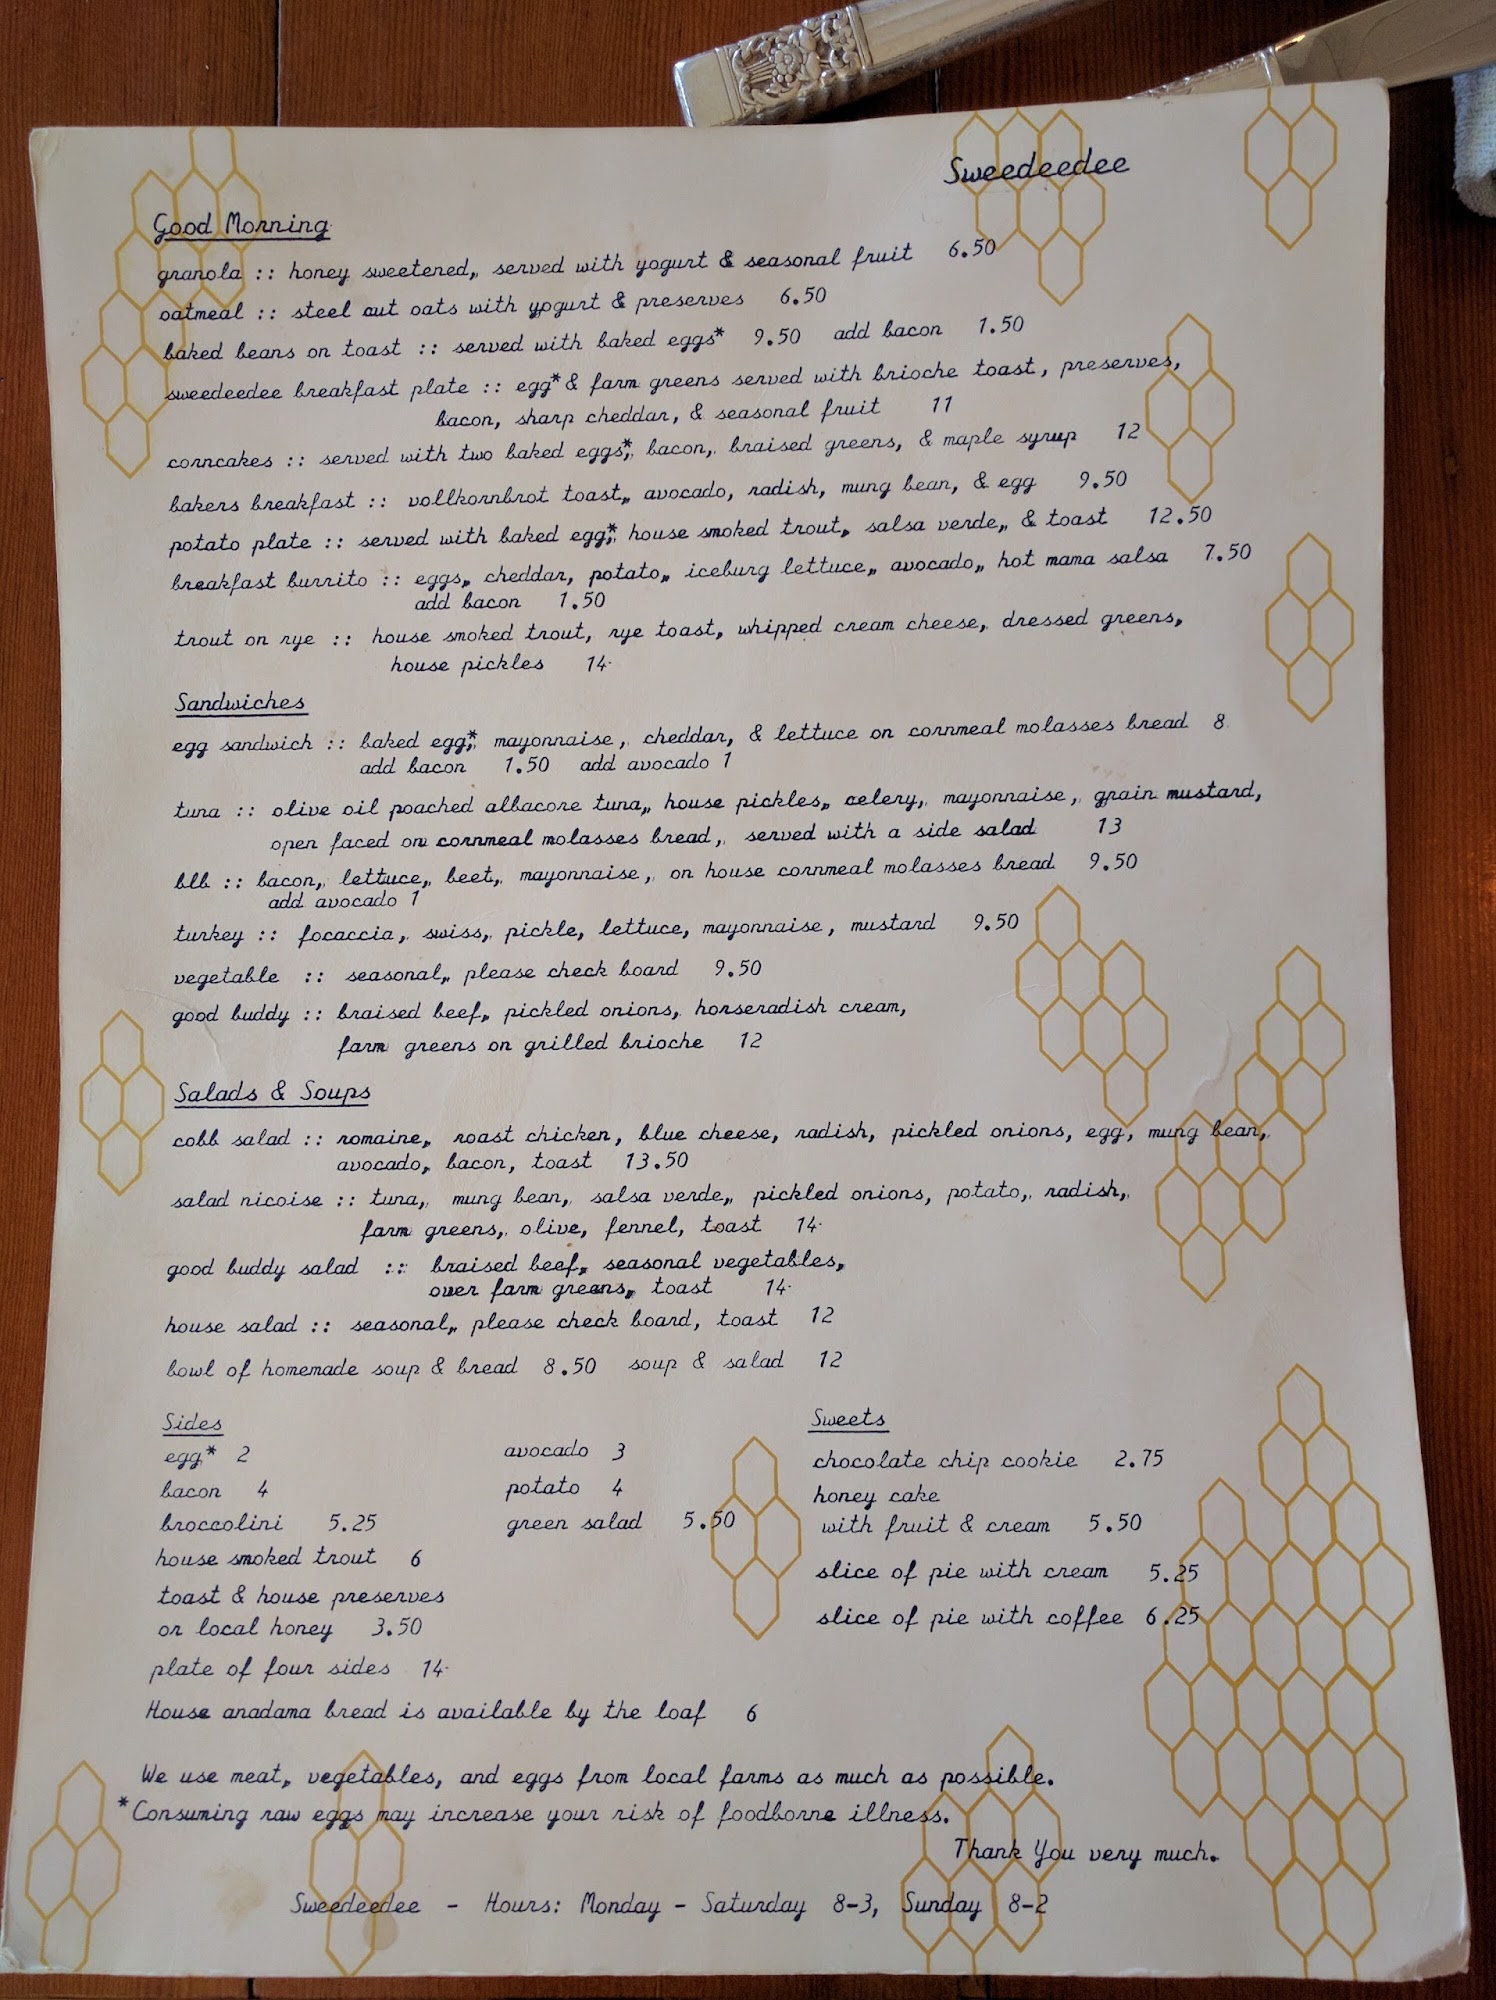 Sweedeedee
Good Morning
granola :: honey sweetened, served with yogurt & seasonal fruit 6.50
oatmeal :: steel cut oats with yogurt & preserves 6.50
baked beans on toast :: served with baked eggs* 9.50 add bacon 1.50
sweedeedee breakfast plate :: egg* & farm greens served with brioche toast, preserves,
bacon, sharp cheddar, & seasonal fruit 11
corncakes :: served with two baked eggs*, bacon, braised greens, & maple syrup 12
bakers breakfast :: vollkornbrot toast, avocado, radish, mung bean, & egg 9.50
potato plate :: served with baked egg*, house smoked trout, salsa verde, & toast 12.50
breakfast burrito :: eggs, cheddar, potato, iceburg lettuce, avocado, hot mama salsa 7.50
add bacon 1.50
trout on rye :: house smoked trout, rye toast, whipped cream cheese, dressed greens,
house pickles 14
Sandwiches
egg sandwich :: baked egg*, mayonnaise, cheddar, & lettuce on cornmeal molasses bread 8
add bacon 1.50 add avocado 1
tuna :: olive oil poached albacore tuna, house pickles, celery, mayonnaise, grain mustard,
open faced on cornmeal molasses bread, served with a side salad 13
blb :: bacon, lettuce, beet, mayonnaise, on house cornmeal molasses bread 9.50
add avocado 1
turkey :: focaccia, swiss, pickle, lettuce, mayonnaise, mustard 9.50
vegetable :: seasonal, please check board 9.50
good buddy :: braised beef, pickled onions, horseradish cream,
farm greens on grilled brioche 12
Salads & Soups
cobb salad :: romaine, roast chicken, blue cheese, radish, pickled onions, egg, mung bean,
avocado, bacon, toast 13.50
salad nicoise :: tuna, mung bean, salsa verde, pickled onions, potato, radish,
farm greens, olive, fennel, toast 14
good buddy salad :: braised beef, seasonal vegetables,
over farm greens, toast 14
house salad :: seasonal, please check board, toast 12
bowl of homemade soup & bread 8.50 soup & salad 12
Sides
egg* 2
bacon 4
broccolini 5.25
house smoked trout 6
toast & house preserves
or local honey 3.50
plate of four sides 14
avocado 3
potato 4
green salad 5.50
Sweets
chocolate chip cookie 2.75
honey cake
with fruit & cream 5.50
slice of pie with cream 5.25
slice of pie with coffee 6.25
House anadama bread is available by the loaf 6
We use meat, vegetables, and eggs from local farms as much as possible.
*Consuming raw eggs may increase your risk of foodborne illness.
Thank You very much.
Sweedeedee - Hours: Monday - Saturday 8-3, Sunday 8-2